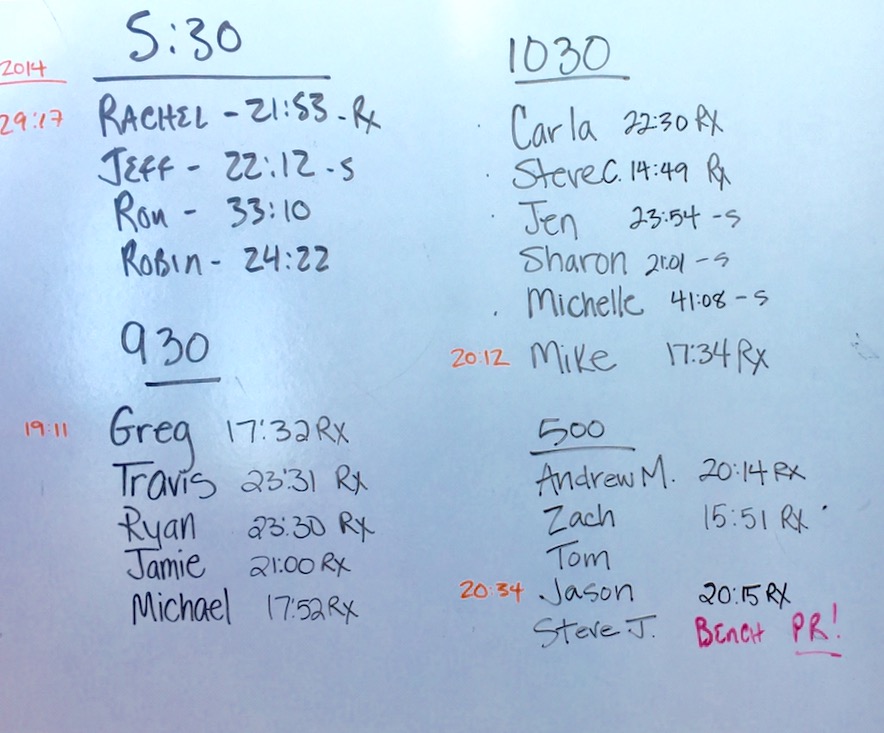 5:30
2014
29:17 RACHEL - 21:53 - Rx
JEFF - 22:12 - S
RON - 33:10
ROBIN - 24:22
930
19:11 Greg 17:32 Rx
Travis 23:31 Rx
Ryan 23:30 Rx
Jamie 21:00 Rx
Michael 17:52 Rx
1030
Carla 22:30 RX
Steve C. 14:49 Rx
Jen 23:54 - S
Sharon 21:01 - S
Michelle 41:08 - S
20:12 Mike 17:34 Rx
500
Andrew M. 20:14 RX
Zach 15:51 Rx
Tom
20:34 Jason 20:15 RX
Steve J. BENCH PR!